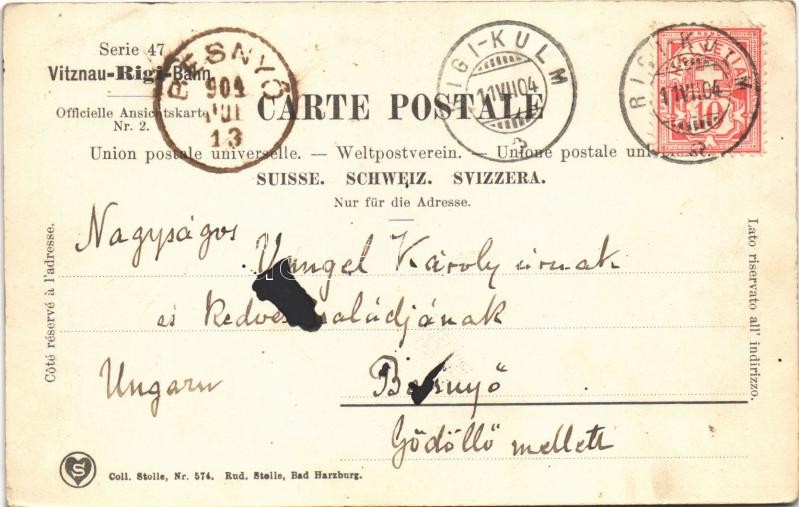 Serie 47
Vitznau-Rigi-Bahn
Officielle Ansichtskarte
Nr. 2.
BESNYŐ
904
JUL
13
RIGI-KULM
11.VII.04
RIGI-KULM
11.VII.04
HELVETIA
10
CARTE POSTALE
Union postale universelle. — Weltpostverein. — Unione postale universale.
SUISSE. SCHWEIZ. SVIZZERA.
Nur für die Adresse.
Côté réservé à l'adresse.
Lato riservato all' indirizzo.
Nagyságos
Károly úrnak
és kedves családjának
Ungarn Besnyő
Gödöllő mellett
S
Coll. Stolle, Nr. 574. Rud. Stolle, Bad Harzburg.